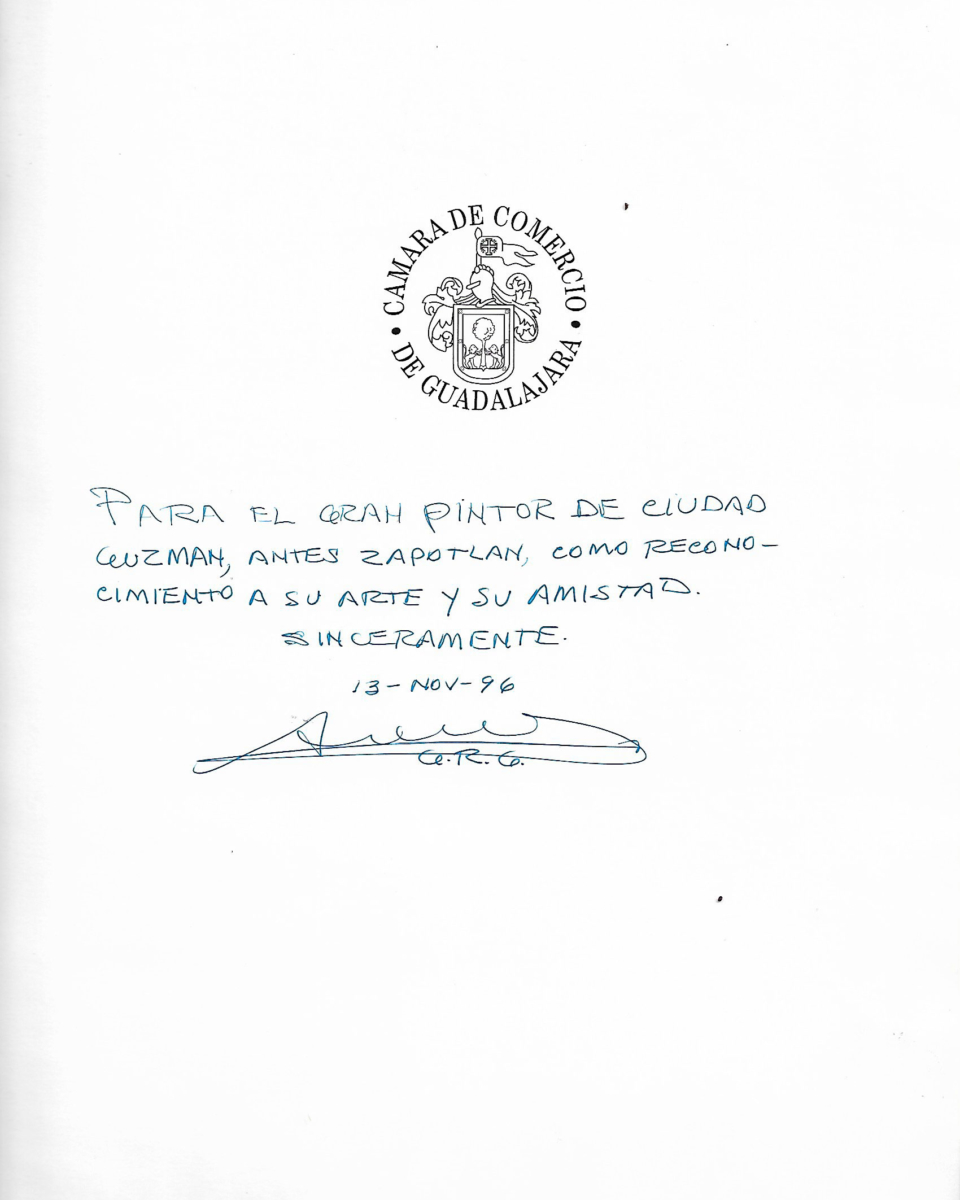 CAMARA DE COMERCIO
• DE GUADALAJARA •
PARA EL GRAN PINTOR DE CIUDAD
GUZMAN, ANTES ZAPOTLAN, COMO RECONO-
CIMIENTO A SU ARTE Y SU AMISTAD.
SINCERAMENTE.
13-NOV-96
G.R.G.